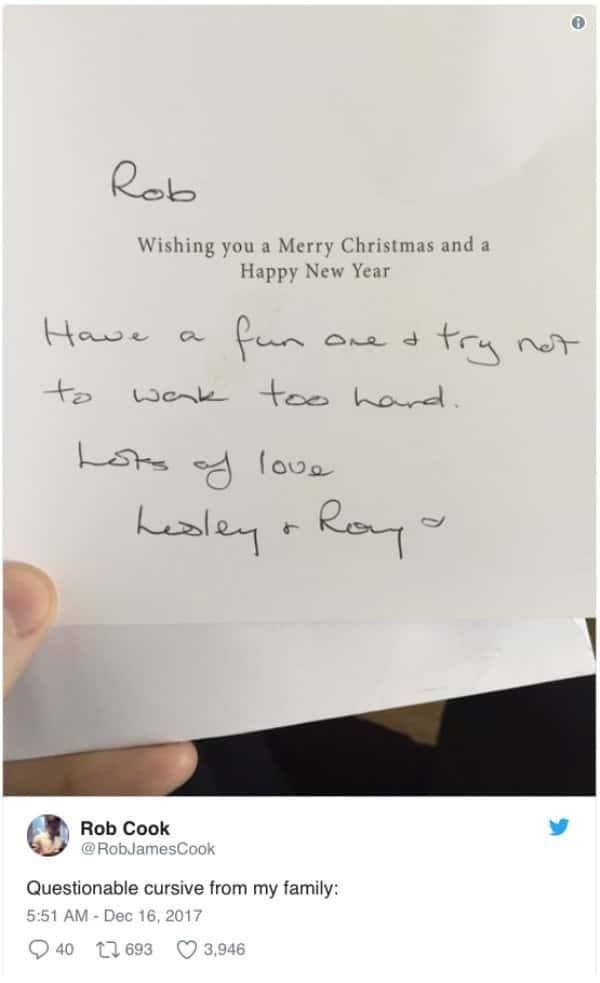 Rob
Wishing you a Merry Christmas and a
Happy New Year
Have a fun one & try not
to work too hard.
Lots of love
Lesley & Ray
Rob Cook
@RobJamesCook
Questionable cursive from my family:
5:51 AM - Dec 16, 2017
40 693 3,946